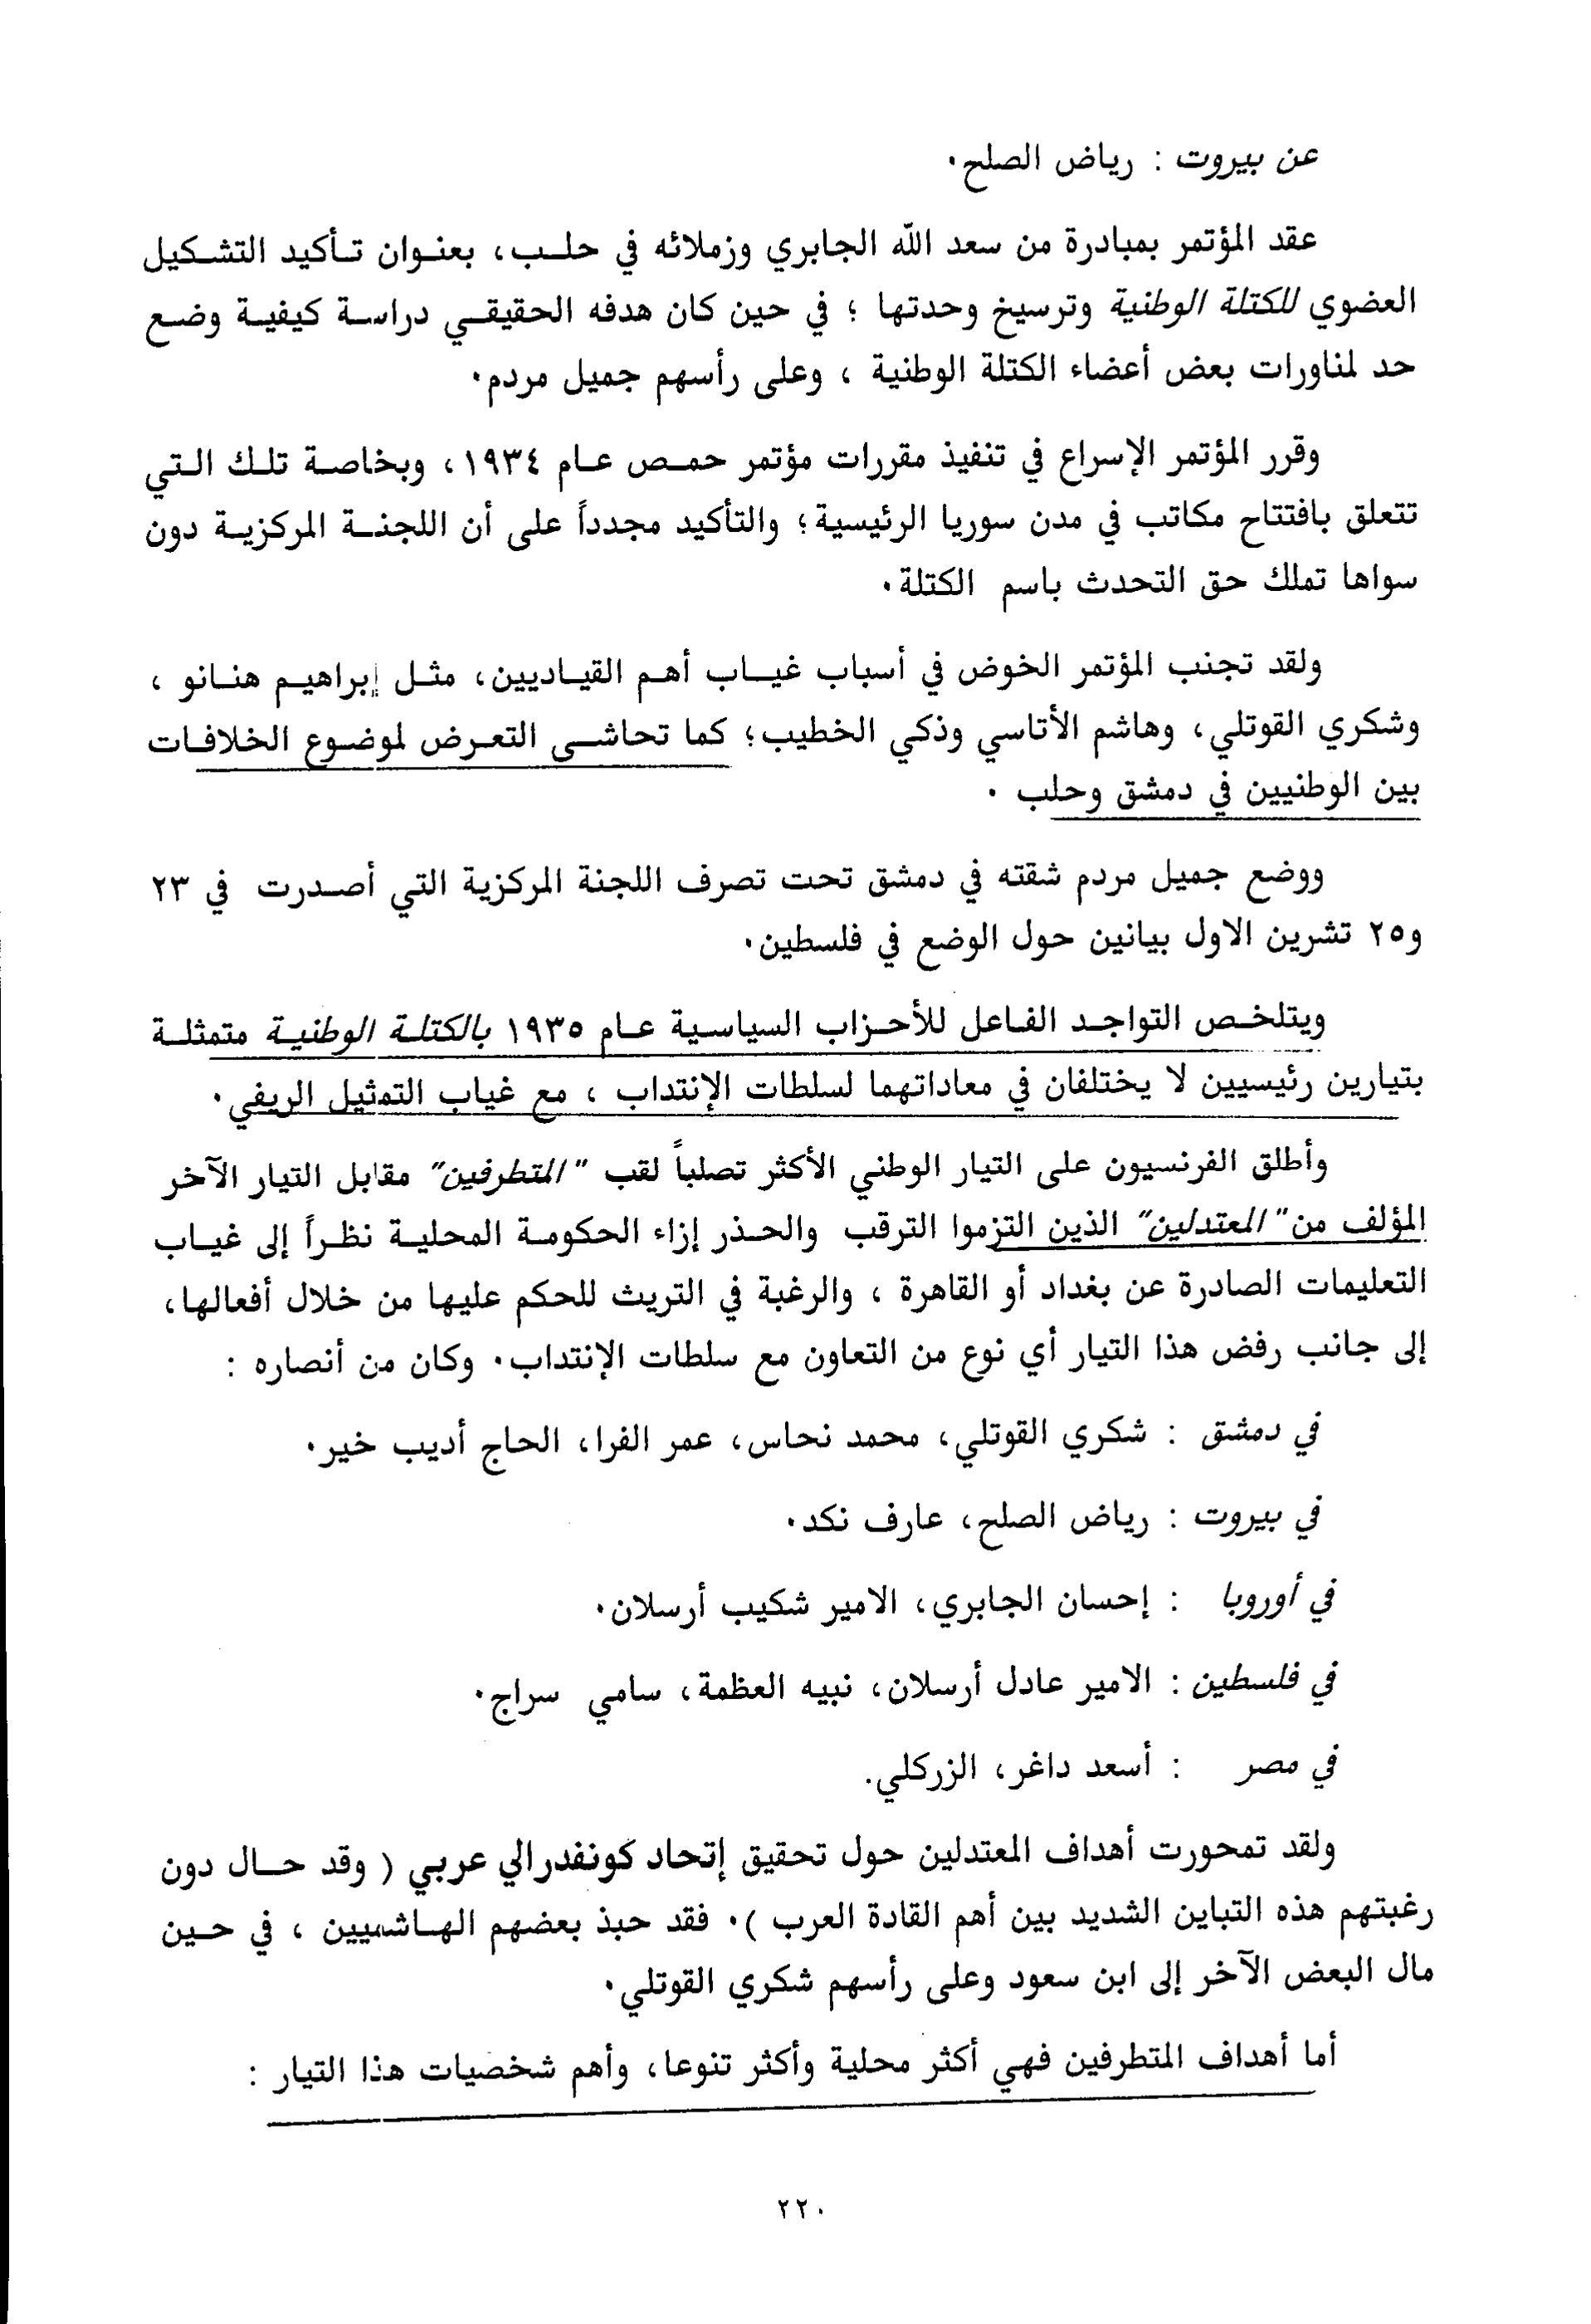 عن بيروت : رياض الصلح.
عقد المؤتمر بمبادرة من سعد الله الجابري وزملائه في حلب، بعنوان تأكيد التشكيل
العضوي للكتلة الوطنية وترسيخ وحدتها ؛ في حين كان هدفه الحقيقي دراسة كيفية وضع
حد لمناورات بعض أعضاء الكتلة الوطنية ، وعلى رأسهم جميل مردم.
وقرر المؤتمر الإسراع في تنفيذ مقررات مؤتمر حمص عام ١٩٣٤، وبخاصة تلك التي
تتعلق بافتتاح مكاتب في مدن سوريا الرئيسية؛ والتأكيد مجدداً على أن اللجنة المركزية دون
سواها تملك حق التحدث باسم الكتلة.
ولقد تجنب المؤتمر الخوض في أسباب غياب أهم القياديين، مثل إبراهيم هنانو ،
وشكري القوتلي، وهاشم الأتاسي وذكي الخطيب؛ كما تحاشى التعرض لموضوع الخلافات
بين الوطنيين في دمشق وحلب .
ووضع جميل مردم شقته في دمشق تحت تصرف اللجنة المركزية التي أصدرت في ٢٣
و٢٥ تشرين الاول بيانين حول الوضع في فلسطين.
ويتلخص التواجد الفاعل للأحزاب السياسية عام ١٩٣٥ بالكتلة الوطنية متمثلة
بتيارين رئيسيين لا يختلفان في معاداتهما لسلطات الإنتداب ، مع غياب التمثيل الريفي.
وأطلق الفرنسيون على التيار الوطني الأكثر تصلباً لقب "المتطرفين" مقابل التيار الآخر
المؤلف من "المعتدلين" الذين التزموا الترقب والحذر إزاء الحكومة المحلية نظراً إلى غياب
التعليمات الصادرة عن بغداد أو القاهرة ، والرغبة في التريث للحكم عليها من خلال أفعالها،
إلى جانب رفض هذا التيار أي نوع من التعاون مع سلطات الإنتداب. وكان من أنصاره :
في دمشق : شكري القوتلي، محمد نحاس، عمر الفرا، الحاج أديب خير.
في بيروت : رياض الصلح، عارف نكد.
في أوروبا : إحسان الجابري، الامير شكيب أرسلان.
في فلسطين : الامير عادل أرسلان، نبيه العظمة، سامي سراج.
في مصر : أسعد داغر، الزركلي.
ولقد تمحورت أهداف المعتدلين حول تحقيق إتحاد كونفدرالي عربي ( وقد حال دون
رغبتهم هذه التباين الشديد بين أهم القادة العرب ). فقد حبذ بعضهم الهاشميين ، في حين
مال البعض الآخر إلى ابن سعود وعلى رأسهم شكري القوتلي.
أما أهداف المتطرفين فهي أكثر محلية وأكثر تنوعا، وأهم شخصيات هذا التيار :
٢٢٠